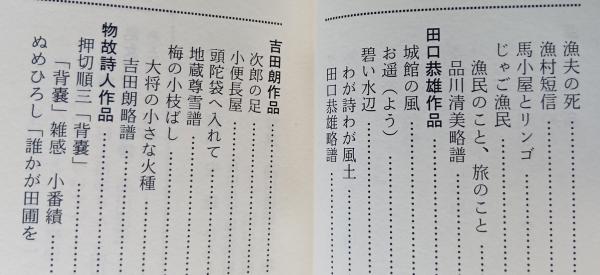 漁夫の死
漁村短信
馬小屋とリンゴ
じゃご漁民
漁民のこと、旅のこと
品川清美略譜
田口恭雄作品
城館の風
お遥（よう）
碧い水辺
わが詩わが風土
田口恭雄略譜
吉田朗作品
次郎の足
小便長屋
頭陀袋へ入れて
地蔵尊雪譜
梅の小枝ばし
大将の小さな火種
吉田朗略譜
物故詩人作品
押切順三「背嚢」
「背嚢」雑感　小番績
ぬめひろし「誰かが田圃を